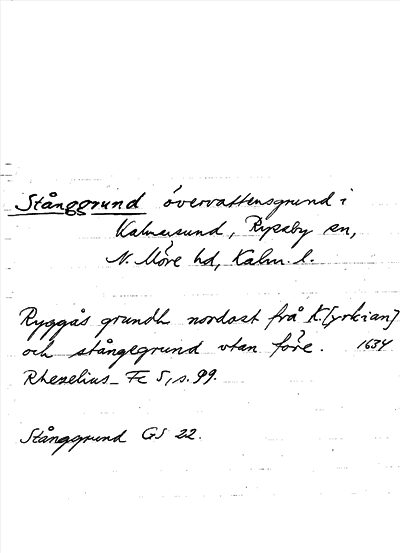 Stånggrund övervattensgrund i
Kalmarsund, Ryssby sn,
N. Möre hd, Kalm. l.
Ryggås grundh nordost frå K.[yrkian]
och stångegrund utan före. 1634
Rhezelius Fc 5, s. 99.
Stånggrund GS 22.